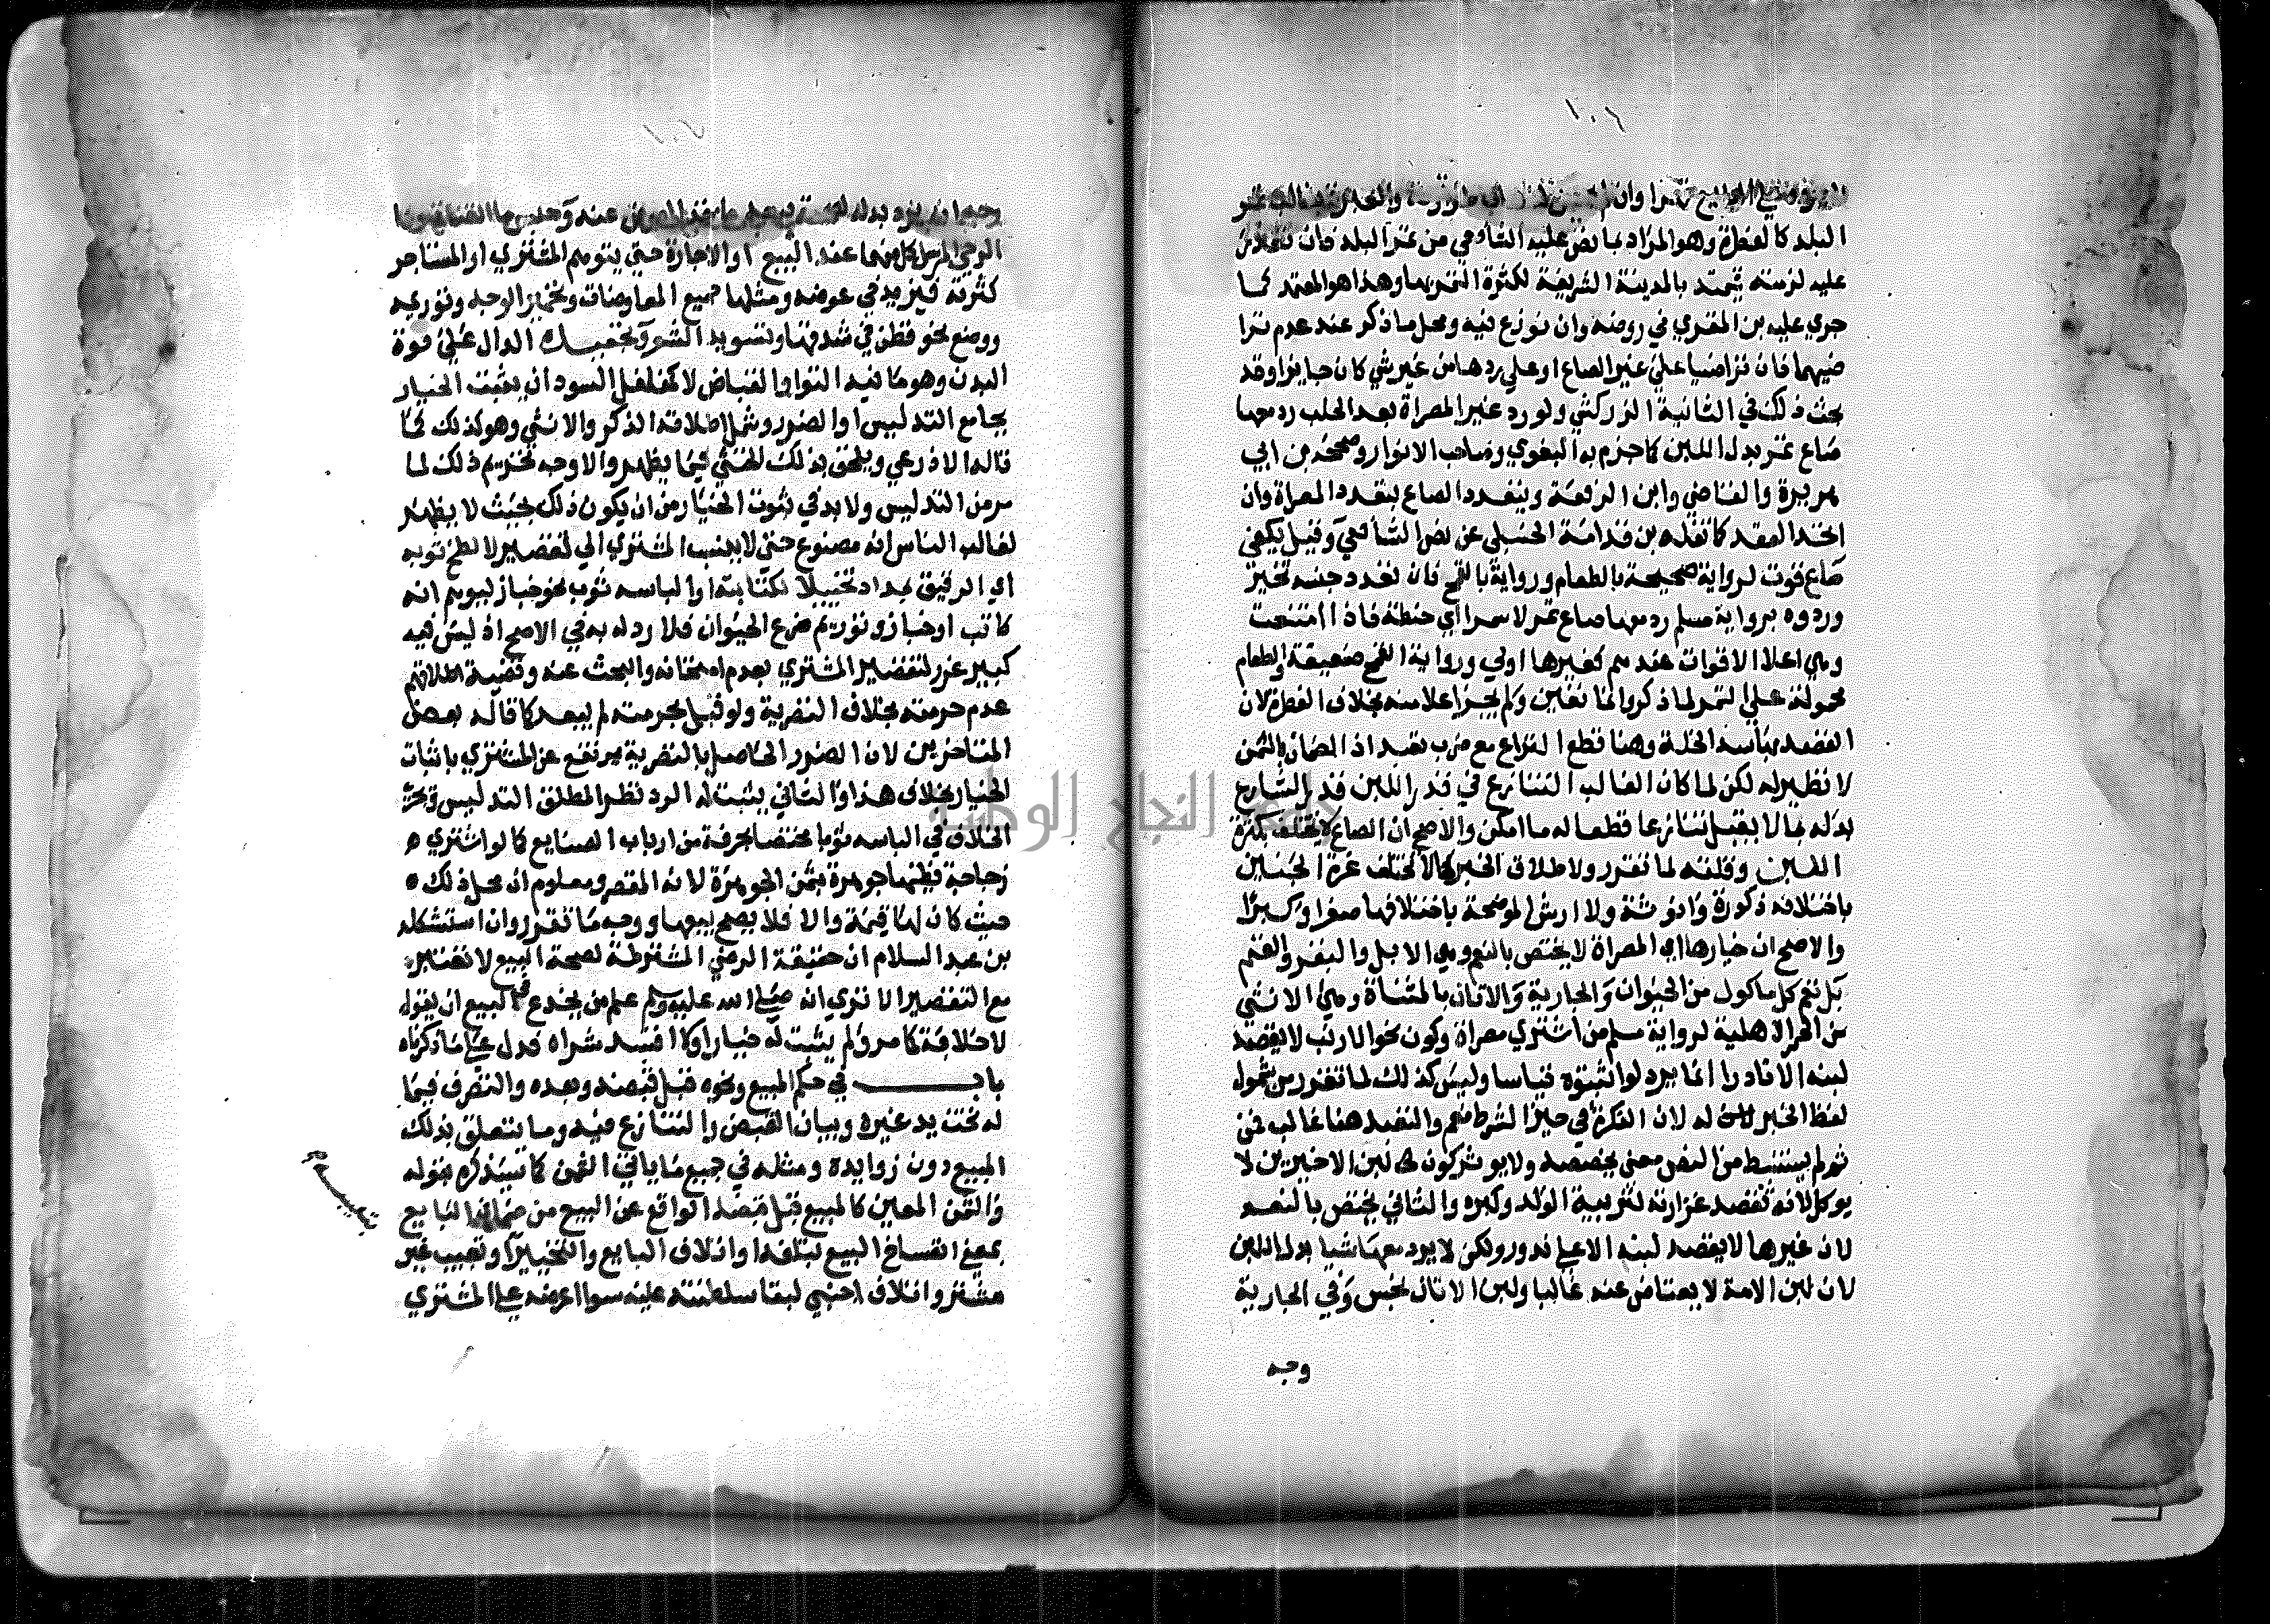 ١٠٦
البلد كالفطرة وهو المراد بما نص عليه الشافعي من تمر البلد فان تعذر
عليه لزمته قيمته بالمدينة الشريفة لكثرة التمر بها وهذا هو المعتمد كما
جري عليه بن المقري في روضه وان نوزع فيه ومحل ما ذكر عند عدم ترا
ضيهما فان تراضيا علي غير الصاع او علي ردها من غير شي كان جايزا وقد
بحث ذلك في الثانية الزركشي ولو رد غير المصراة بعد الحلب رد معها
صاع تمر بدل اللبن كما جزم به البغوي وصاحب الانوار وصححه بن ابي
هريرة والقاضي وابن الرفعة ويتعدد الصاع بتعدد المصراة وان
اتحد العقد كما نقله بن قدامة الحنبلي عن نص الشافعي وقيل يكفي
صاع قوت لرواية صحيحة بالطعام ورواية بالقمح فان تعدد جنسه تخير
وردوه برواية مسلم رد معها صاع تمر لا سمرا اي حنطة فاذا امتنعت
وهي اعلا الاقوات عندهم فغيرها اولي ورواية القمح ضعيفة والطعام
محمولة علي التمر لما ذكر وانما تعين ولم يجز اعلا منه بخلاف الفطرة لان
القصد بها سد الخلة وهنا قطع النزاع مع ضرب تعبد اذ الضمان بالتمن
لا نظير له لكن لما كان الغالب التنازع في قدر اللبن قدر الشارع
بدله بما لا يقبل تنازعا قطعا له ما امكن والاصح ان الصاع لا يختلف بكثرة
اللبن وقلته لما تقرر ولاطلاق الخبر كما لا تختلف غرة الجنين
باختلافه ذكورة وانوثة ولا ارش الموضحة باختلافها صغرا وكبرا
والاصح ان خيارها اي المصراة لا يختص بالنعم وهي الابل والبقر والغنم
بل يعم كل ماكول من الحيوان والجارية والاتان بالمثناة وهي الانثي
من الحمر الاهلية لرواية مسلم من اشتري مصراة وكون نحو الارنب لا يقصد
لبنه الا نادرا انما يرد لو اثبتوه قياسا وليس كذلك لما تقرر من شمول
لفظ الخبر له لان النكرة في حيز الشرط تعم والتعبد هنا غالب فمن
ثم لم يستنبط من النص معني يخصصه ولا يوثر كون لبن الاخيرين لا
يوكل لانه تقصد غزارته لتربية الولد وكبره والثاني يختص بالنعم
لان غيرها لا يقصد لبنه الا علي ندور ولكن لا يرد معها شيا بدل اللبن
لان لبن الامة لا يعتاض عنه غالبا ولبن الاتان نجس وفي الجارية
وجه
١٠٧
الرحي المرسل كل منهما عند البيع او الاجارة حتي يتوهم المشتري او المستاجر
كثرته فيزيد في عوضه ومثلها جميع المعاوضات وتحمير الوجه وتوريمه
ووضع نحو قطن في شدقها وتسويد الشعر وتجعيده الدال علي قوة
البدن وهو ما فيه التوا وانقباض لا كمفلفل السودان يثبت الخيار
بجامع التدليس او الضرر وشمل اطلاقه الذكر والانثي وهو كذلك كما
قاله الاذرعي ويلحق بذلك الخنثي فيما يظهر والاوجه تحريم ذلك لما
مر من التدليس ولا بد في ثبوت الخيار من ان يكون ذلك بحيث لا يظهر
لغالب الناس انه مصنوع حتي لا ينسب المشتري الي تقصير لا لطخ ثوبه
اي الرقيق بمداد تخييلا لكتابته او الباسه ثوب نحو خباز ليوهم انه
كاتب او خباز وتوريم ضرع الحيوان فلا رد له به في الاصح اذ ليس فيه
كبير غرر لتقصير المشتري بعدم امتحانه والبحث عنه وقضية اطلاقهم
عدم حرمته بخلاف التصرية ولو قيل بحرمته لم يبعد كما قاله بعض
المتاخرين لان الضرر الحاصل بالتصرية يرتفع عن المشتري باثبات
الخيار بخلاف هذا والثاني يثبت له الرد نظر المطلق التدليس
الخلاف في الباسه ثوبا مختصا بحرفة من ارباب الصنايع كما لو اشتري ه
زجاجة فظنها جوهرة بثمن الجوهرة لانه المقصر ومعلوم ان محل ذلك ه
حيث كان لها قيمة والا فلا يصح بيعها ووجه ما تقرر وان استشكله
بن عبد السلام ان حقيقة الرضي المشترطة لصحة البيع لا تعتبر
مع التقصير الا تري انه صلي الله عليه وسلم علم من يخدع في البيع ان يقول
لا خلابة كما مر ولم يثبت له خيارا ولا افسد شراه فدل علي ما ذكرناه
باب في حكم المبيع ونحوه قبل قبضه وبعده والتصرف فيما
له تحت يد غيره وبيان القبض والتنازع فيه وما يتعلق بذلك
المبيع دون زوايده ومثله في جميع ما ياتي الثمن كما سيذكره بقوله
والثمن المعين كالمبيع قبل قبضه الواقع عن البيع من ضمان البايع
بمعني انفساخ البيع بتلفه او اتلاف البايع والتخيير او تعييب غير
مشتر واتلاف اجنبي لبقا سلطنته عليه سوا اعرضه علي المشتري